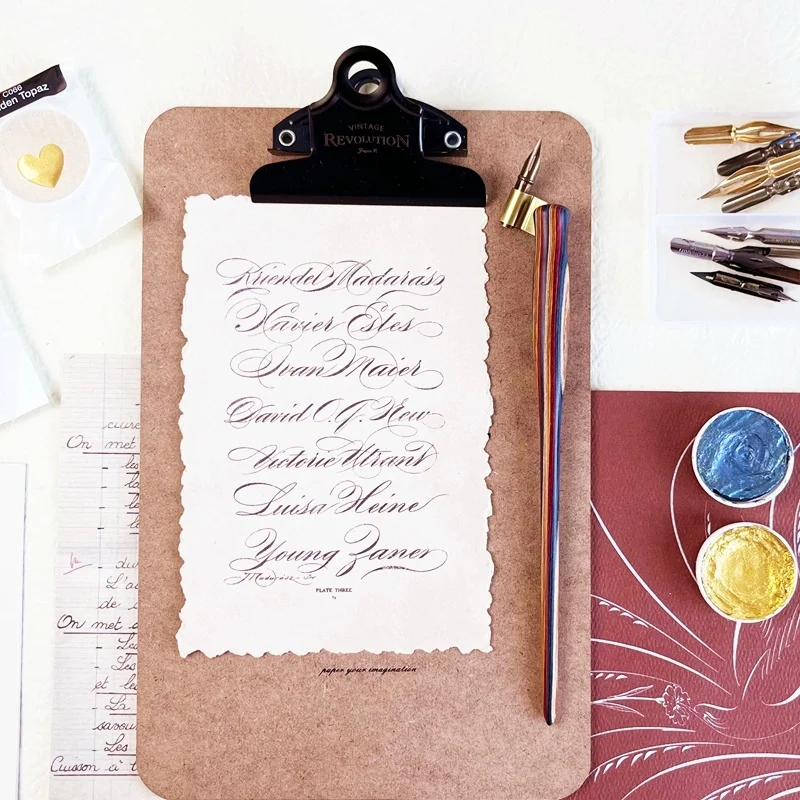 C066
den Topaz
VINTAGE
REVOLUTION
Kriendel Madarás
Xavier Estes
Ivan Maier
David O. G. New
Victorie Utrant
Luisa Heine
Young Zaner
Madarász
PLATE THREE
paper your imagination
cuire
On met
les
la
la
les
du
L'a
de
On met
Les
Les
et les
La
savou
Les
Cuisson à t